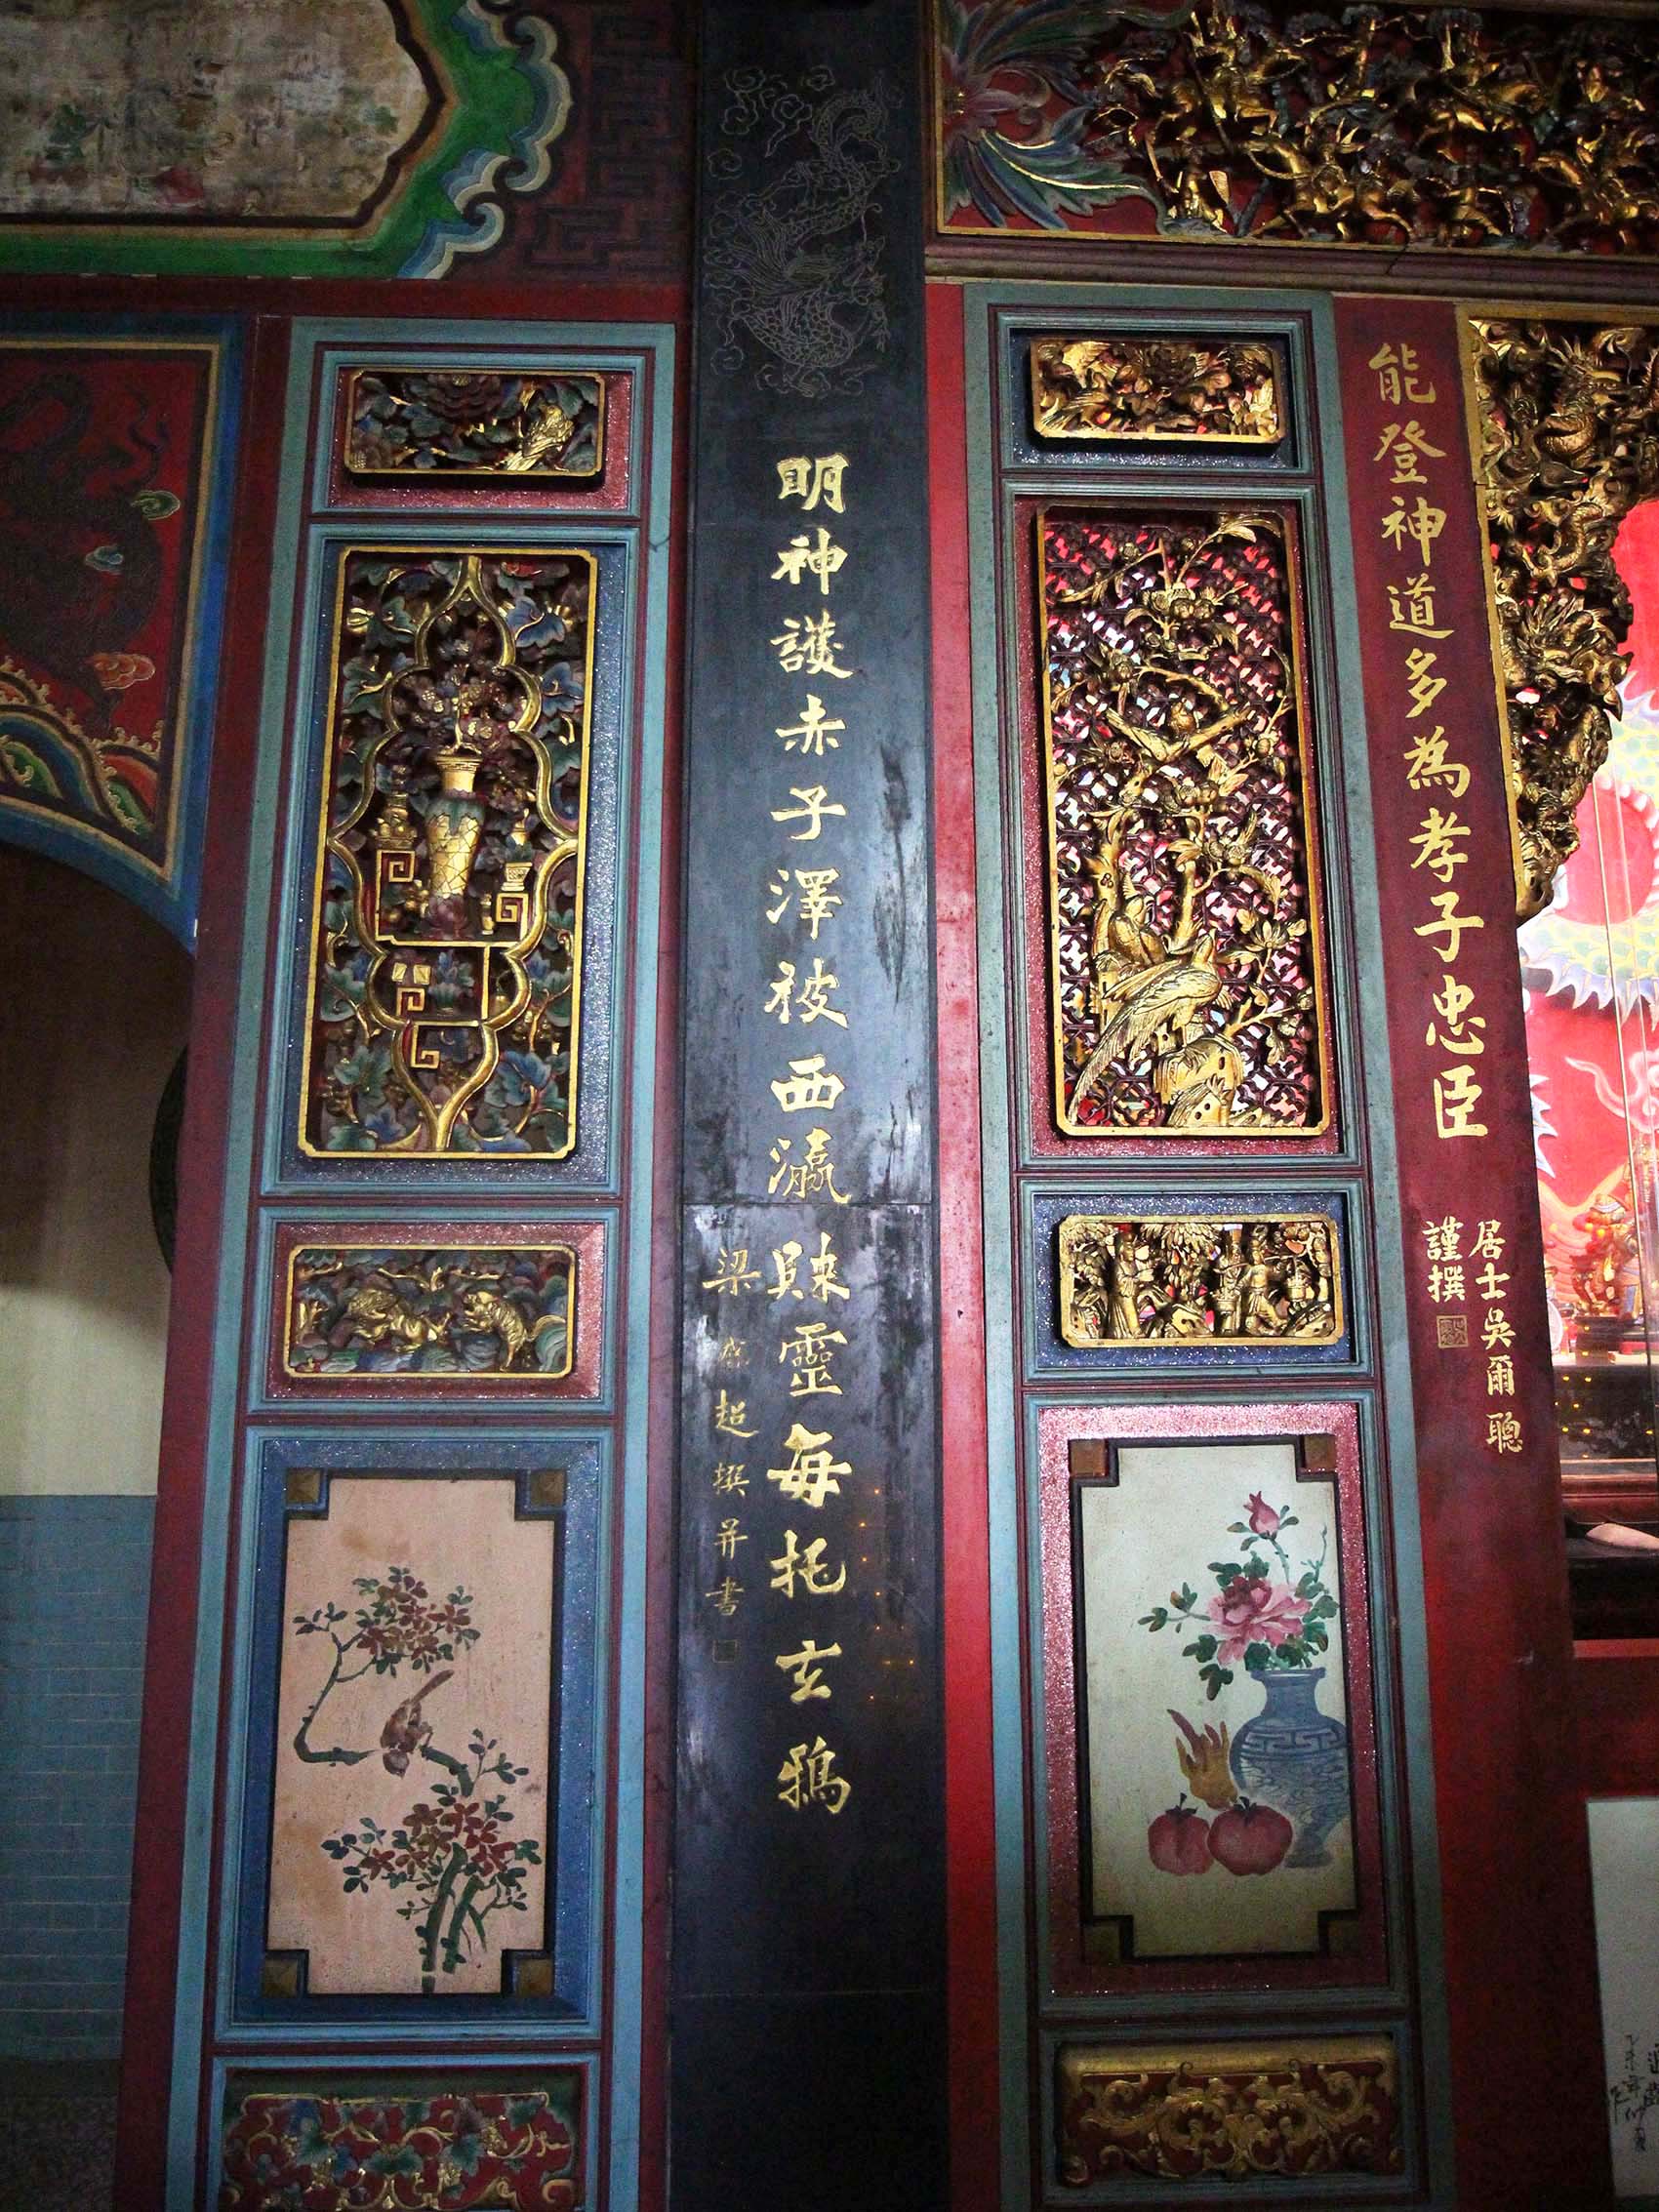 能登神道多為孝子忠臣
居士吳爾聰
謹撰
明神護赤子澤被西瀛賕靈每托玄鴉
梁盛超撰并書